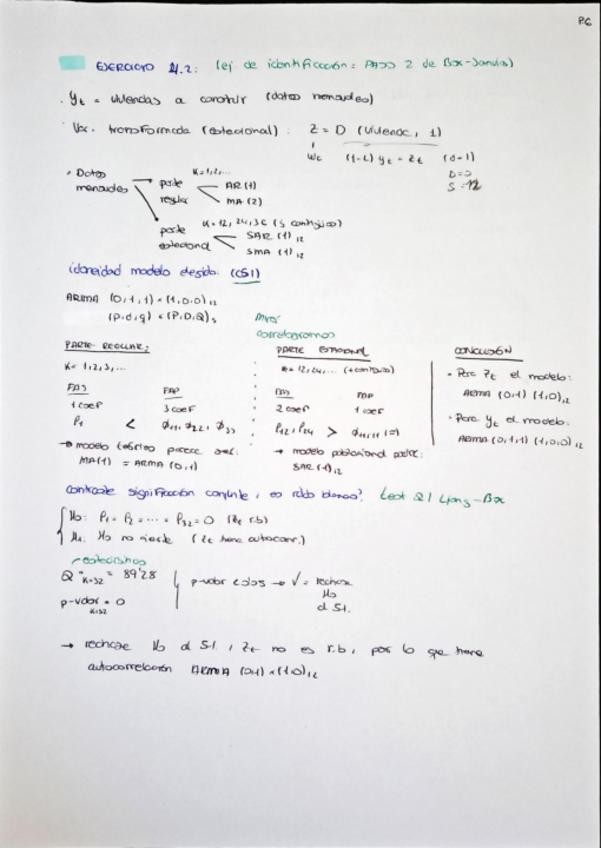 P6
EJERCICIO 4.2: (ej de identificación: PASO 2 de Box-Jenkins)
· yt = viviendas a construir (datos mensuales)
· Var. transformada (estacional): Z = D (vivienda, 1)
wt (1-L) yt = zt (d=1)
D=0
S=12
· Datos mensuales
parte regular
K=1,2,...
AR(1)
MA(2)
parte estacional
K=12,24,36 (y contiguos)
SAR (1)12
SMA (1)12
idoneidad modelo elegido: (CSI)
ARIMA (0,1,1) × (1,0,0)12
(p,d,q) × (P,D,Q)s
mirar correlogramas
PARTE REGULAR:
K= 1,2,3,...
FAS FAP
1 coef 3 coef
P1 < Φ11, Φ22, Φ33
→ modelo teórico parece ser:
MA(1) = ARMA (0,1)
PARTE ESTACIONAL
K=12,24,... (+contiguos)
FAS FAP
2 coef 1 coef
P12, P24 >
→ modelo poblacional podría:
SAR (1)12
CONCLUSIÓN
· Para zt el modelo:
ARMA (0,1) (1,0)12
· Para yt el modelo:
ARIMA (0,1,1) (1,0,0)12
contraste significación conjunta, es ruido blanco? test Q / Ljung-Box
H0: P1 = P2 = .... = P32 = 0 (zt r.b)
H1: H0 no cierta (zt tiene autocorr.)
estadísticos
Q K=32 = 89'28
p-valor K=32 = 0
p-valor < 0'05 → V = rechaza H0 al 5%.
→ rechazar H0 al 5%, zt no es r.b, por lo que tiene
autocorrelación ARMA (0,1) × (1,0)12